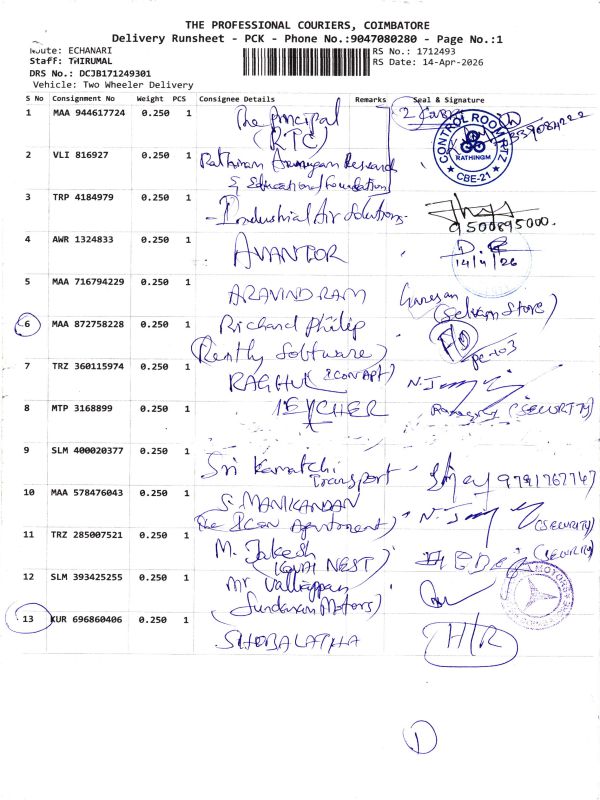 THE PROFESSIONAL COURIERS, COIMBATORE
Delivery Runsheet - PCK - Phone No.:9047080280 - Page No.:1
Route: ECHANARI
RS No.: 1712493
Staff: THIRUMAL
RS Date: 14-Apr-2026
DRS No.: DCJB171249301
Vehicle: Two Wheeler Delivery
S No Consignment No Weight PCS Consignee Details Remarks Seal & Signature
1 MAA 944617724 0.250 1 The Principal
(RTC)
CONTROL ROOM RTZ
RATHINAM
CBE-21
2 VLI 816927 0.250 1 Rathinam Arumugam Research
& Educational Foundation
3 TRP 4184979 0.250 1 Industrial Air Solutions
9500895000.
4 AWR 1324833 0.250 1 AVANTOR
14/4/26
5 MAA 716794229 0.250 1 ARAVINDRAM Ganesan
(Selvam Store)
6 MAA 872758228 0.250 1 Richard Philip
(Rently Software)
7 TRZ 360115974 0.250 1 RAGHUL (ICON APT)
8 MTP 3168899 0.250 1 EYCHER (SECURITY)
9 SLM 400020377 0.250 1 Sri Kamatchi
Transport 9791767747
10 MAA 578476043 0.250 1 S. MANIKANDAN
(The ICON Apartment) (SECURITY)
11 TRZ 285007521 0.250 1 M. Jakesh
NEST) (SECURITY)
12 SLM 393425255 0.250 1 Mr Valliappan
(Sundaram Motors)
MOTORS
13 KUR 696860406 0.250 1 SHOBALATHA H/R
1